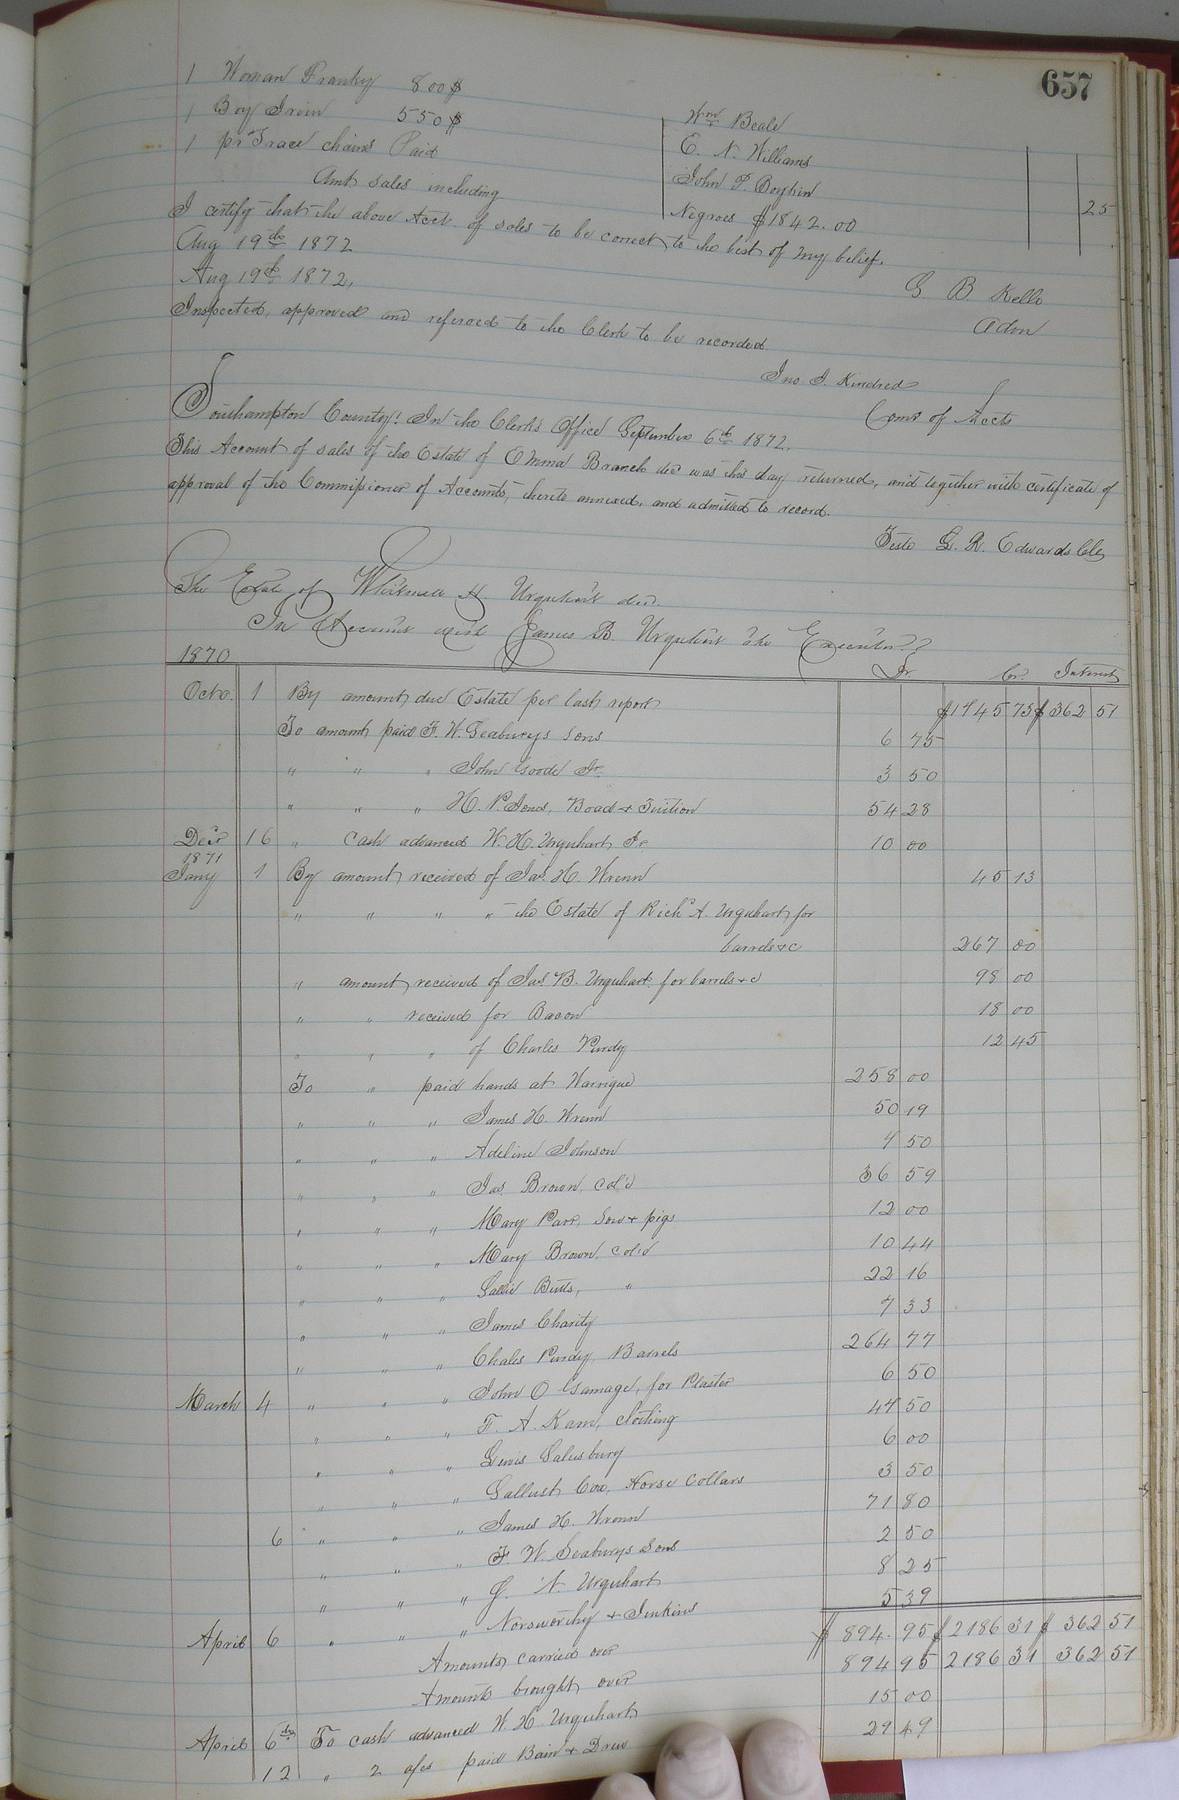 657
1 Woman Franky 800$ Wm Beale
1 Boy Irvin 550$ E. N. Williams
1 pr Trace chains Paid John P. Boykin 25
Amt sales including Negroes $1842.00
I certify that the above Acct of sales to be correct to the best of my belief.
Aug 19th 1872
G B Kello
Adm
Aug 19th 1872,
Inspected, approved and referred to the Clerk to be recorded.
Jno J. Kindred
Comr of Accts
Southampton County: In the Clerk's Office September 6th 1872.
This Account of sales of the Estate of Emma Branch dec was this day returned, and together with certificate of
approval of the Commissioner of Accounts, thereto annexed, and admitted to record.
Teste G. R. Edwards Clk
The Estate of Whitmell H Urquhart dec.
In Account with James B. Urquhart the Executor
1870 Dr Cr. Interest
Octo. 1 By amount due Estate per last report $1745 73 $362 51
To amount paid F. W. Seaburys Sons 6 75
" " " John Goode Jr. 3 50
" " " H. P. Board & Tuition 54 28
Decr 16 " Cash advanced W. H. Urquhart Jr 10 00
1871
Jany 1 By amount received of Jas. H. Wrenn 45 13
" " " " the Estate of Richd A. Urquhart for
barrels &c 267 00
" amount received of Jas. B. Urquhart for barrels &c 98 00
" " received for Bacon 18 00
" " " of Charles Purdy 12 45
To " paid hands at Warrique 258 00
" " " James H. Wrenn 50 19
" " " Adeline Johnson 7 50
" " " Jas. Brown, Col'd 36 59
" " " Mary Parr, Sow & pigs 12 00
" " " Mary Brown, Col'd 10 44
" " " Sallie Butts, " 22 16
" " " James Charity 7 33
" " " Chales Purdy, Barrels 264 77
March 4 " " " John O Gamage, for Plaster 6 50
" " " F. A. Kam, Clothing 47 50
" " " Lewis Salusbury 6 00
" " " Sallust Cox, Horse Collars 3 50
6 " " " James H. Wrenn 71 80
" " " F. W. Seaburys Sons 2 50
" " " J. N. Urquhart 8 25
April 6 " " " Norsworthy & Jenkins 5 39
Amounts carried over $894.95 $2186 31 $362 51
Amounts brought over 894 95 2186 31 362 51
April 6th To cash advanced W. H. Urquhart 15 00
12 " 2 a/cs paid Bain & Drew 29 49